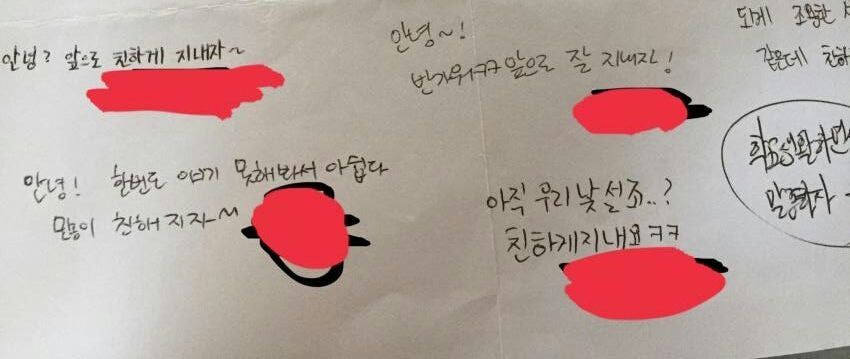 안녕? 앞으로 친하게 지내자~
안녕~!
반가워ㅋㅋ 앞으로 잘 지내자!
되게 조용한
같은데 친하
안녕! 한번도 얘기 못해봐서 아쉽다
많이 친해지자~
아직 우리 낯설죠..?
친하게지내요ㅋㅋ
학교생활하면서
말 하자